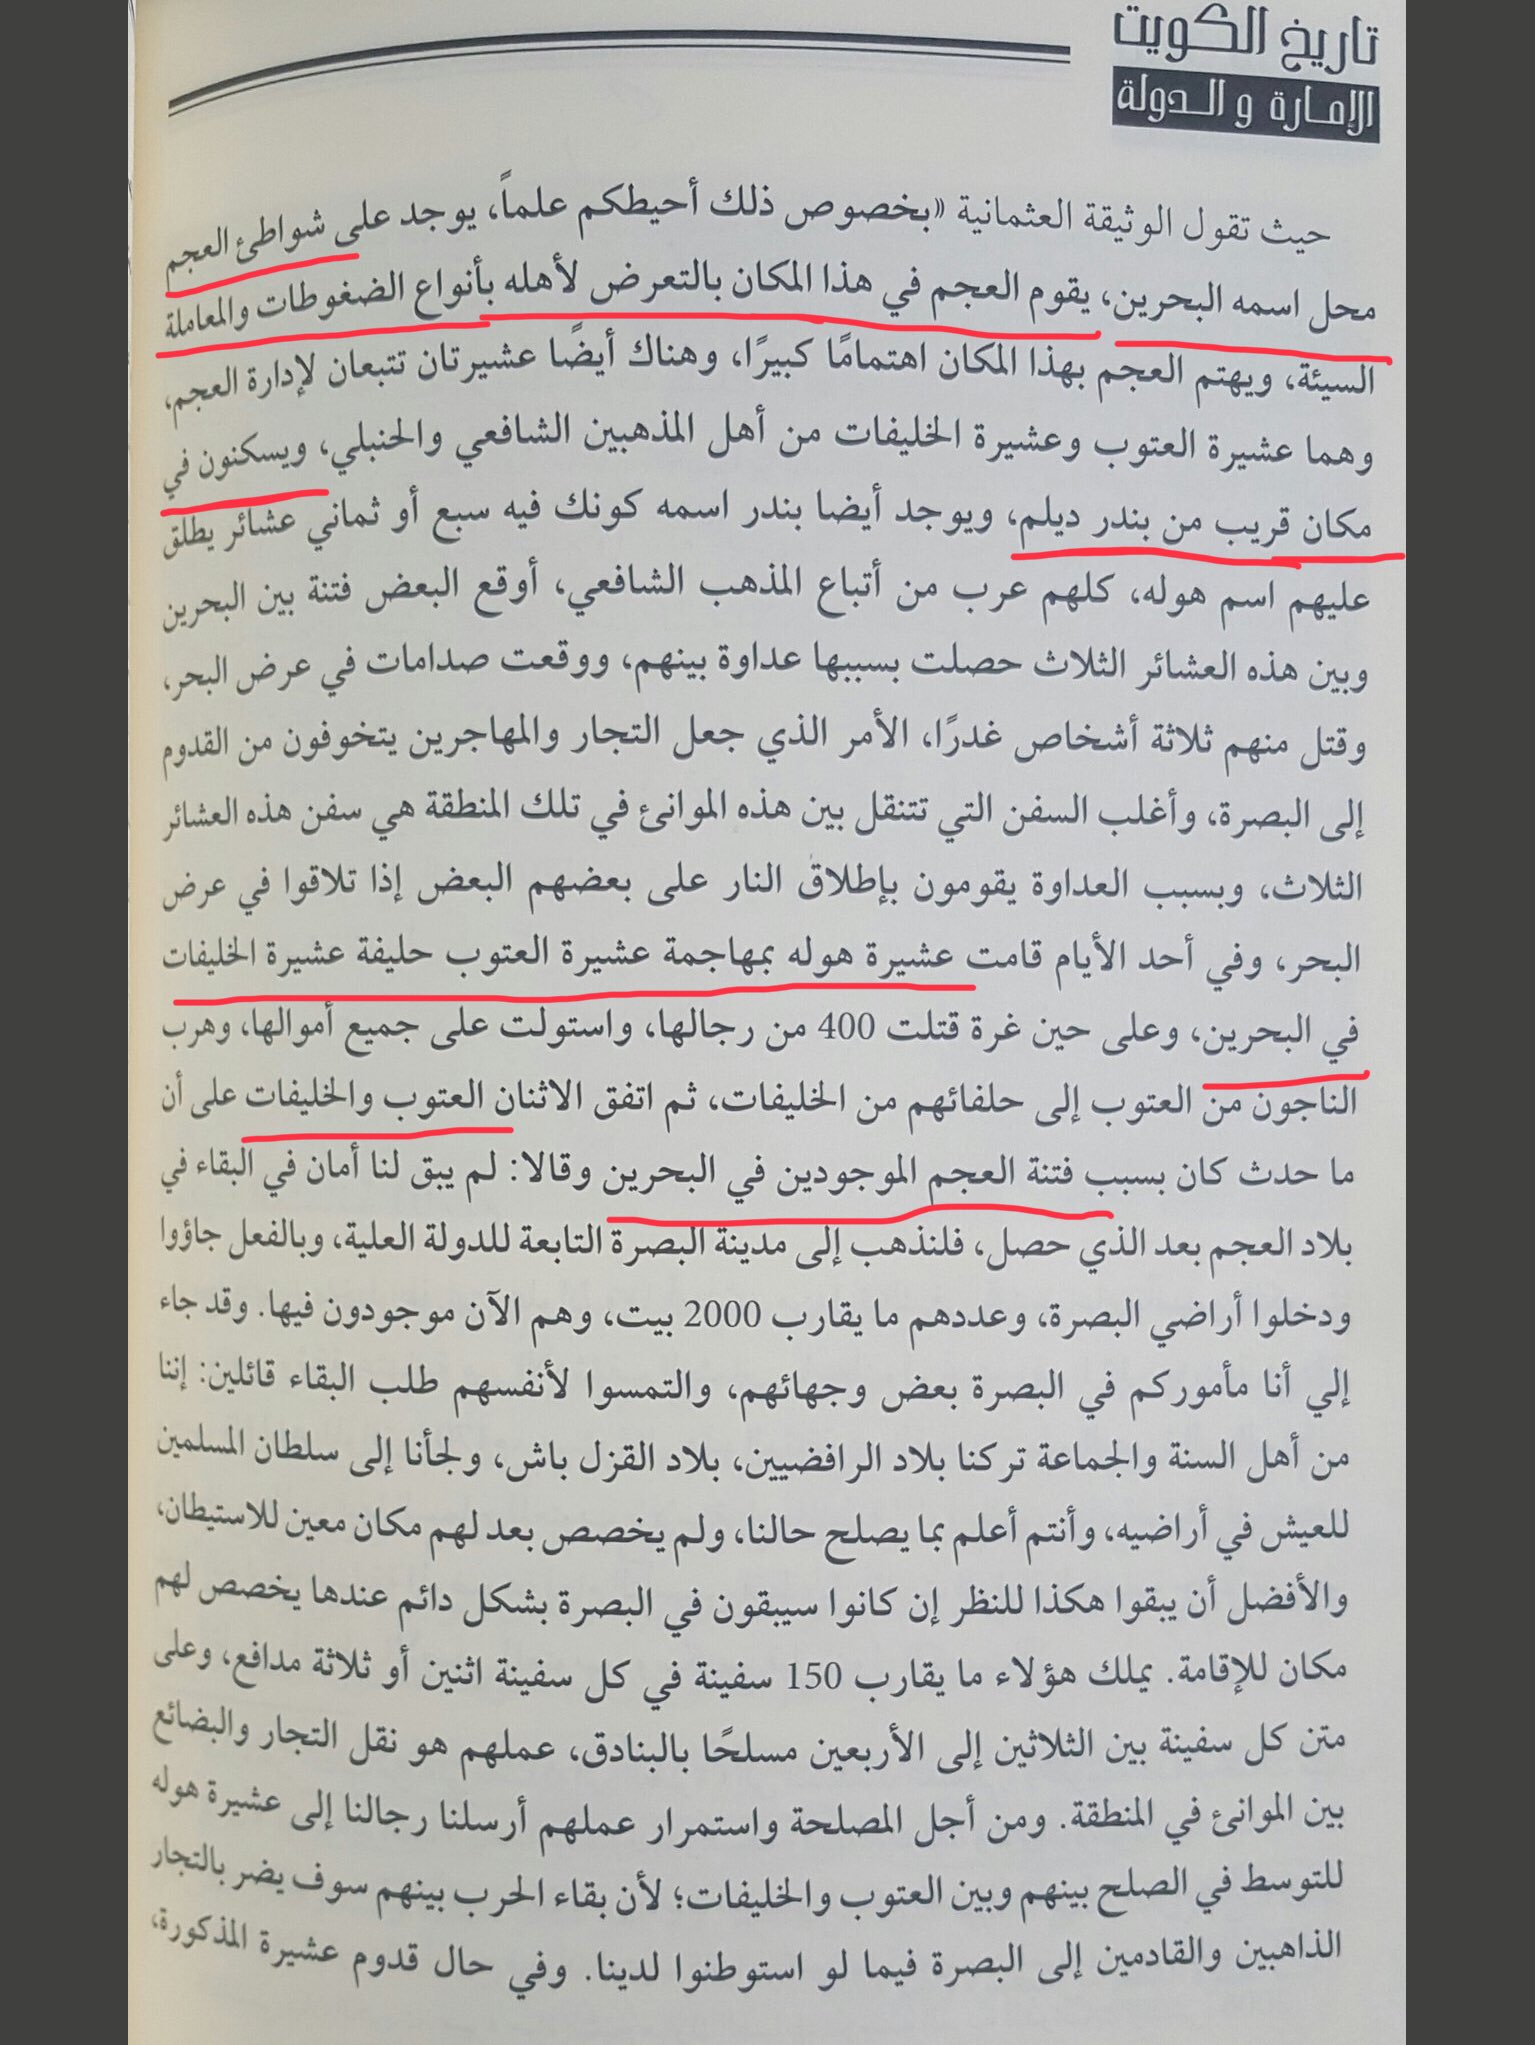 تاريخ الكويت
الإمارة والدولة
حيث تقول الوثيقة العثمانية «بخصوص ذلك أحيطكم علماً، يوجد على شواطئ العجم
محل اسمه البحرين، يقوم العجم في هذا المكان بالتعرض لأهله بأنواع الضغوطات والمعاملة
السيئة، ويهتم العجم بهذا المكان اهتمامًا كبيرًا، وهناك أيضًا عشيرتان تتبعان لإدارة العجم،
وهما عشيرة العتوب وعشيرة الخليفات من أهل المذهبين الشافعي والحنبلي، ويسكنون في
مكان قريب من بندر ديلم، ويوجد أيضا بندر اسمه كونك فيه سبع أو ثماني عشائر يطلق
عليهم اسم هوله، كلهم عرب من أتباع المذهب الشافعي، أوقع البعض فتنة بين البحرين
وبين هذه العشائر الثلاث حصلت بسببها عداوة بينهم، ووقعت صدامات في عرض البحر،
وقتل منهم ثلاثة أشخاص غدرًا، الأمر الذي جعل التجار والمهاجرين يتخوفون من القدوم
إلى البصرة، وأغلب السفن التي تتنقل بين هذه الموانئ في تلك المنطقة هي سفن هذه العشائر
الثلاث، وبسبب العداوة يقومون بإطلاق النار على بعضهم البعض إذا تلاقوا في عرض
البحر، وفي أحد الأيام قامت عشيرة هوله بمهاجمة عشيرة العتوب حليفة عشيرة الخليفات
في البحرين، وعلى حين غرة قتلت 400 من رجالها، واستولت على جميع أموالها، وهرب
الناجون من العتوب إلى حلفائهم من الخليفات، ثم اتفق الاثنان العتوب والخليفات على أن
ما حدث كان بسبب فتنة العجم الموجودين في البحرين وقالا: لم يبق لنا أمان في البقاء في
بلاد العجم بعد الذي حصل، فلنذهب إلى مدينة البصرة التابعة للدولة العلية، وبالفعل جاؤوا
ودخلوا أراضي البصرة، وعددهم ما يقارب 2000 بيت، وهم الآن موجودون فيها. وقد جاء
إلي أنا مأموركم في البصرة بعض وجهائهم، والتمسوا لأنفسهم طلب البقاء قائلين: إننا
من أهل السنة والجماعة تركنا بلاد الرافضيين، بلاد القزل باش، ولجأنا إلى سلطان المسلمين
للعيش في أراضيه، وأنتم أعلم بما يصلح حالنا، ولم يخصص بعد لهم مكان معين للاستيطان،
والأفضل أن يبقوا هكذا للنظر إن كانوا سيبقون في البصرة بشكل دائم عندها يخصص لهم
مكان للإقامة. يملك هؤلاء ما يقارب 150 سفينة في كل سفينة اثنين أو ثلاثة مدافع، وعلى
متن كل سفينة بين الثلاثين إلى الأربعين مسلحًا بالبنادق، عملهم هو نقل التجار والبضائع
بين الموانئ في المنطقة. ومن أجل المصلحة واستمرار عملهم أرسلنا رجالنا إلى عشيرة هوله
للتوسط في الصلح بينهم وبين العتوب والخليفات؛ لأن بقاء الحرب بينهم سوف يضر بالتجار
الذاهبين والقادمين إلى البصرة فيما لو استوطنوا لدينا. وفي حال قدوم عشيرة المذكورة،